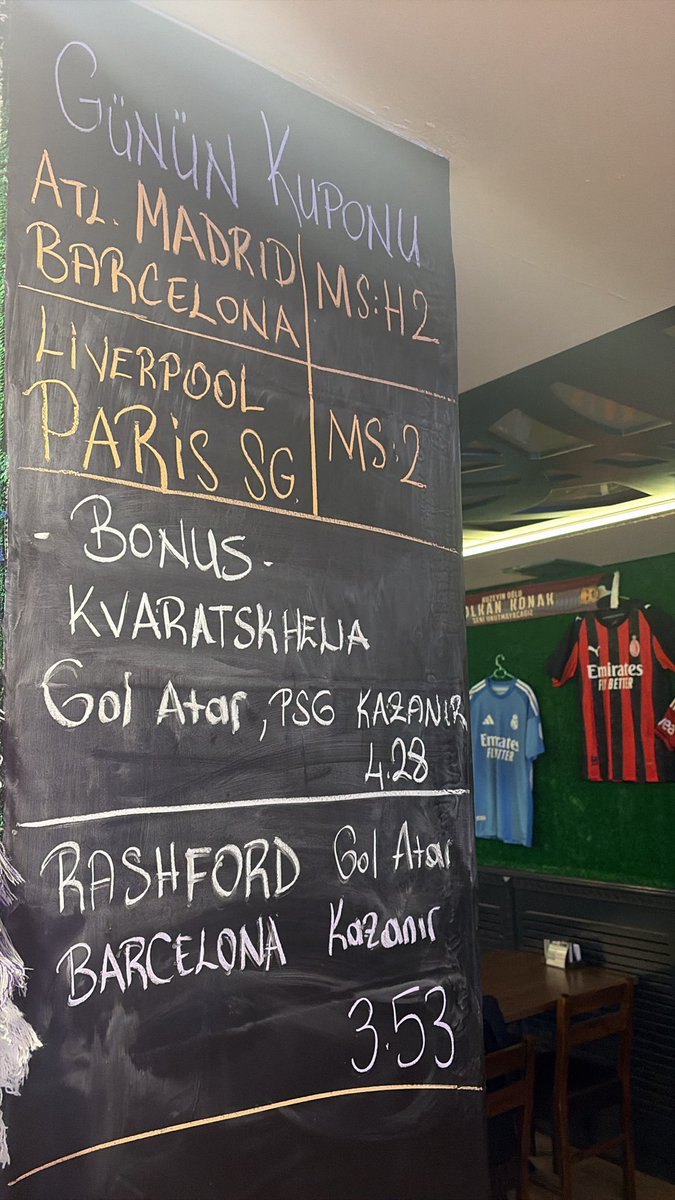 GÜNÜN KUPONU
ATL. MADRID
BARCELONA
MS:H2
LİVERPOOL
PARİS SG.
MS:2
- BONUS -
KVARATSKHELIA
Gol Atar, PSG KAZANIR
4.28
RASHFORD Gol Atar
BARCELONA Kazanır
3.53
KUZEYİN OĞLU
VOLKAN KONAK
SENİ UNUTMAYACAĞIZ
Emirates
FLY BETTER
Emirates
FLY BETTER